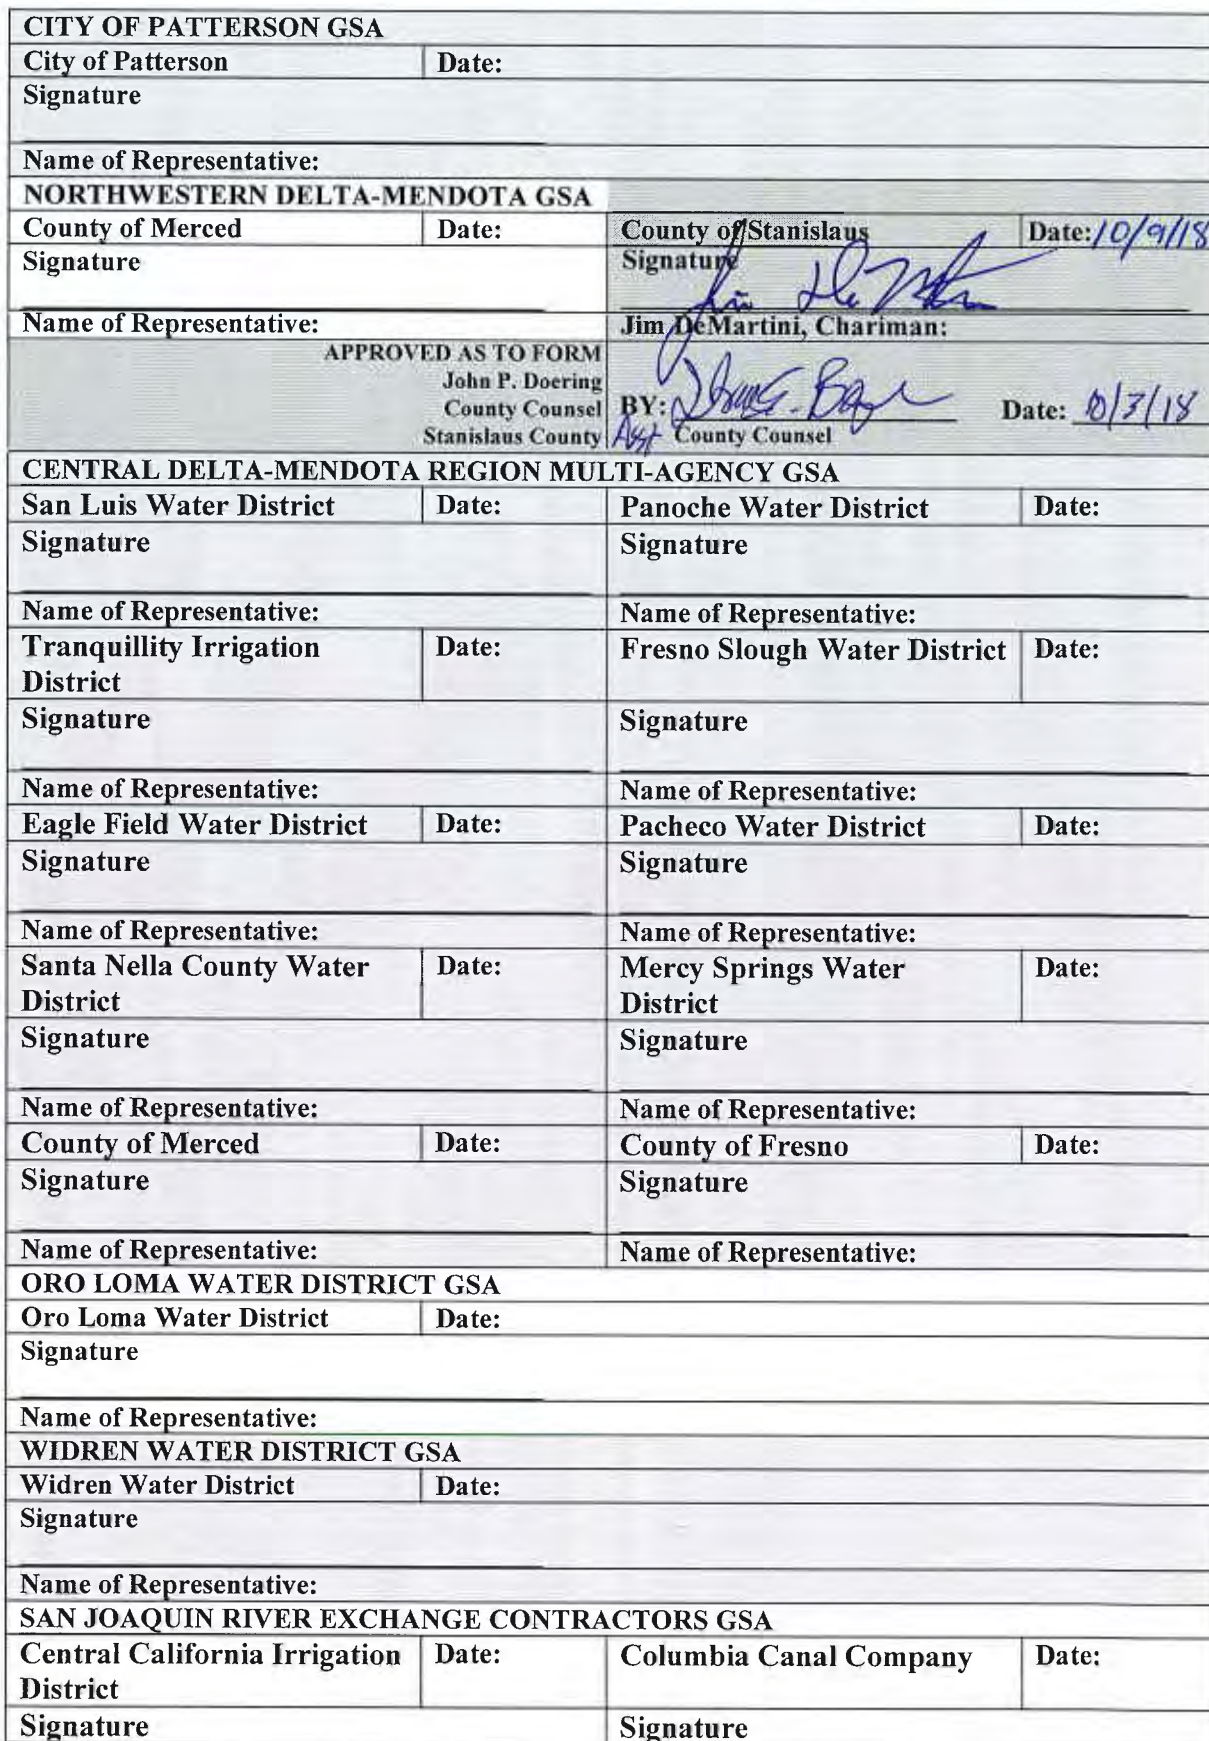 CITY OF PATTERSON GSA
City of Patterson Date:
Signature
Name of Representative:
NORTHWESTERN DELTA-MENDOTA GSA
County of Merced Date: County of Stanislaus Date: 10/9/18
Signature Signature
Name of Representative: Jim DeMartini, Chariman:
APPROVED AS TO FORM
John P. Doering
County Counsel BY: Date: 10/3/18
Stanislaus County Asst County Counsel
CENTRAL DELTA-MENDOTA REGION MULTI-AGENCY GSA
San Luis Water District Date: Panoche Water District Date:
Signature Signature
Name of Representative: Name of Representative:
Tranquillity Irrigation Date: Fresno Slough Water District Date:
District
Signature Signature
Name of Representative: Name of Representative:
Eagle Field Water District Date: Pacheco Water District Date:
Signature Signature
Name of Representative: Name of Representative:
Santa Nella County Water Date: Mercy Springs Water Date:
District District
Signature Signature
Name of Representative: Name of Representative:
County of Merced Date: County of Fresno Date:
Signature Signature
Name of Representative: Name of Representative:
ORO LOMA WATER DISTRICT GSA
Oro Loma Water District Date:
Signature
Name of Representative:
WIDREN WATER DISTRICT GSA
Widren Water District Date:
Signature
Name of Representative:
SAN JOAQUIN RIVER EXCHANGE CONTRACTORS GSA
Central California Irrigation Date: Columbia Canal Company Date:
District
Signature Signature